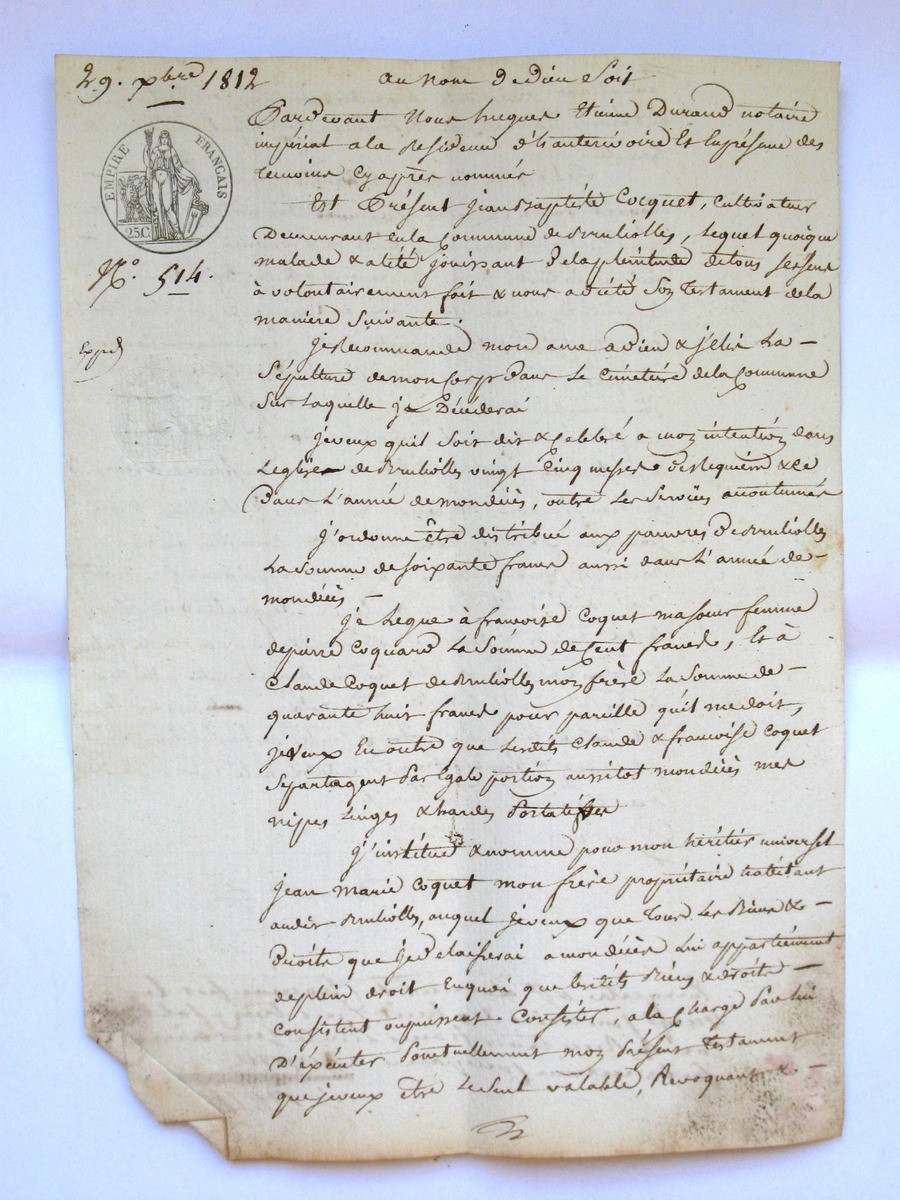 29. xbre 1812
au nom de dieu soit
EMPIRE FRANÇAIS
25C.
N.° 514.
Expé
Pardevant Nous hugues Etienne Durand notaire
impérial a la Residence d'hauterivoire Et En présence des
temoins Cy après nommés
Est Présent Jean Baptiste Cocquet, cultivateur
Demeurant en la Commune de Brulliolles, Lequel quoique
malade & alité jouissant de la pleinitude de tous ses sens
à volontairement fait & nous a dicté Son Testament de la
maniere Suivante.
je Recommande mon ame a dieu & j'Elis La
Sépulture de mon Corps dans Le Cimetiére de la Commune
Sur Laquelle je Décéderai
je veux quil Soit dit & Celebré a mon intention dans
L'eglise de Brullolles vingt Cinq messes de Requiem & Ce
dans L'année de mon décès, outre Les Services accoutumés
j'ordonne être distribué aux pauvres de Brullolles
La Somme de Soixante francs aussi dans L'année de
mon décès
je Legue à francoise Coquet ma soeur femme
de pierre Coquard La Somme de Cent francs, Et à
Claude Coquet de Brullolles mon frère La Somme de
quarante huit francs pour pareille qu'il me doit,
je veux En outre que Lesdits Claude & francoise Coquet
Se partagent Par Egale portion aussitot mon décès mes
nipes Linges & hardes
j'institue & nomme pour mon héritier universel
jean marie Coquet mon frère propriétaire habitant
audit Brullolles, auquel je veux que Tous Les Biens &
Droits que je delaisserai a mon décès Lui appartiennent
de plein droit En quoi que Lesdits Biens & droits
Consistent ou puissent Consister, a la Charge Par lui
D'éxécuter Ponctuellement mon Présent Testament
que je veux être Le seul valable, Revoquant &